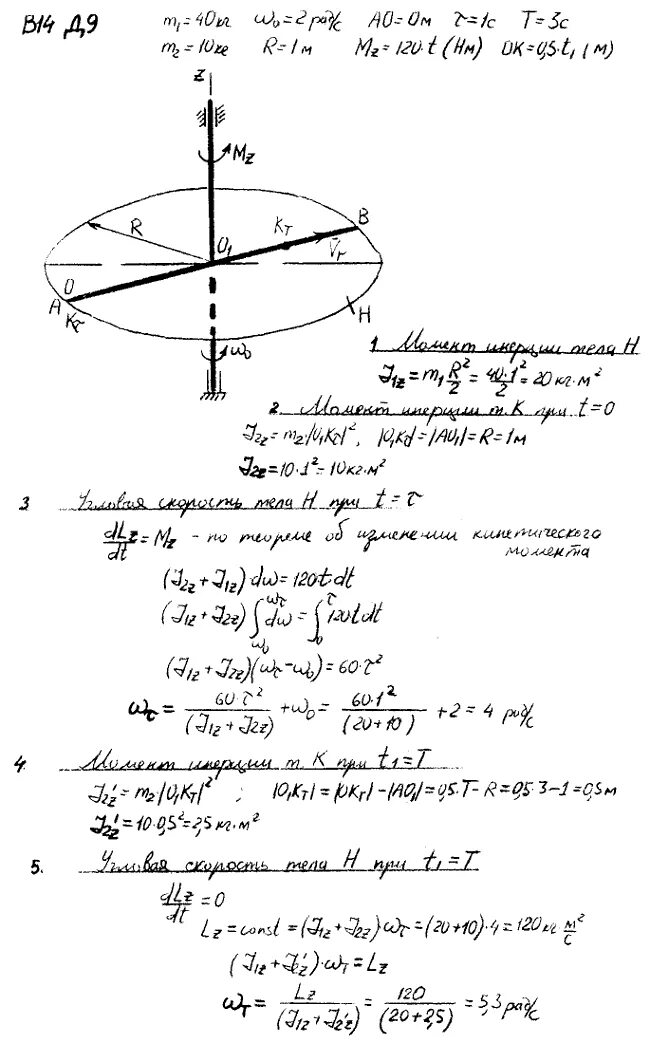 В14 Д9 m₁=40кг ω₀=2 рад/с AO=0м τ=1с T=3с
m₂=10кг R=1м M_z=120·t (Нм) OK=0,5·t₁ (м)
z
M_z
R
O₁
K_T
B
V̄_r
O
A
K_τ
H
ω₀
1 Момент инерции тела H
J₁z=m₁R²/2=40·1²/2=20кг·м²
2 Момент инерции т. K при t=0
J₂z=m₂·|O₁K_τ|², |O₁K_τ|=|AO₁|=R=1м
J₂z=10·1²=10кг·м²
3 Угловая скорость тела H при t=τ
dLz/dt=M_z - по теореме об изменении кинетического
момента
(J₂z+J₁z)·dω=120·t dt
(J₁z+J₂z)∫_{ω₀}^{ω_τ}dω=∫_0^τ 120t dt
(J₁z+J₂z)(ω_τ-ω₀)=60·τ²
ω_τ=60·τ²/(J₁z+J₂z)+ω₀=60·1²/(20+10)+2=4 рад/с
4. Момент инерции т. K при t₁=T
J₂z'=m₂·|O₁K_T|² ; |O₁K_T|=|OK_T|-|AO₁|=0,5·T-R=0,5·3-1=0,5м
J₂z'=10·0,5²=2,5кг·м²
5. Угловая скорость тела H при t₁=T
dLz/dt=0
Lz=const=(J₁z+J₂z)ω_τ=(20+10)·4=120кг м²/с
(J₁z+J₂z')·ω_T=Lz
ω_T=Lz/(J₁z+J₂z')=120/(20+2,5)=5,3 рад/с